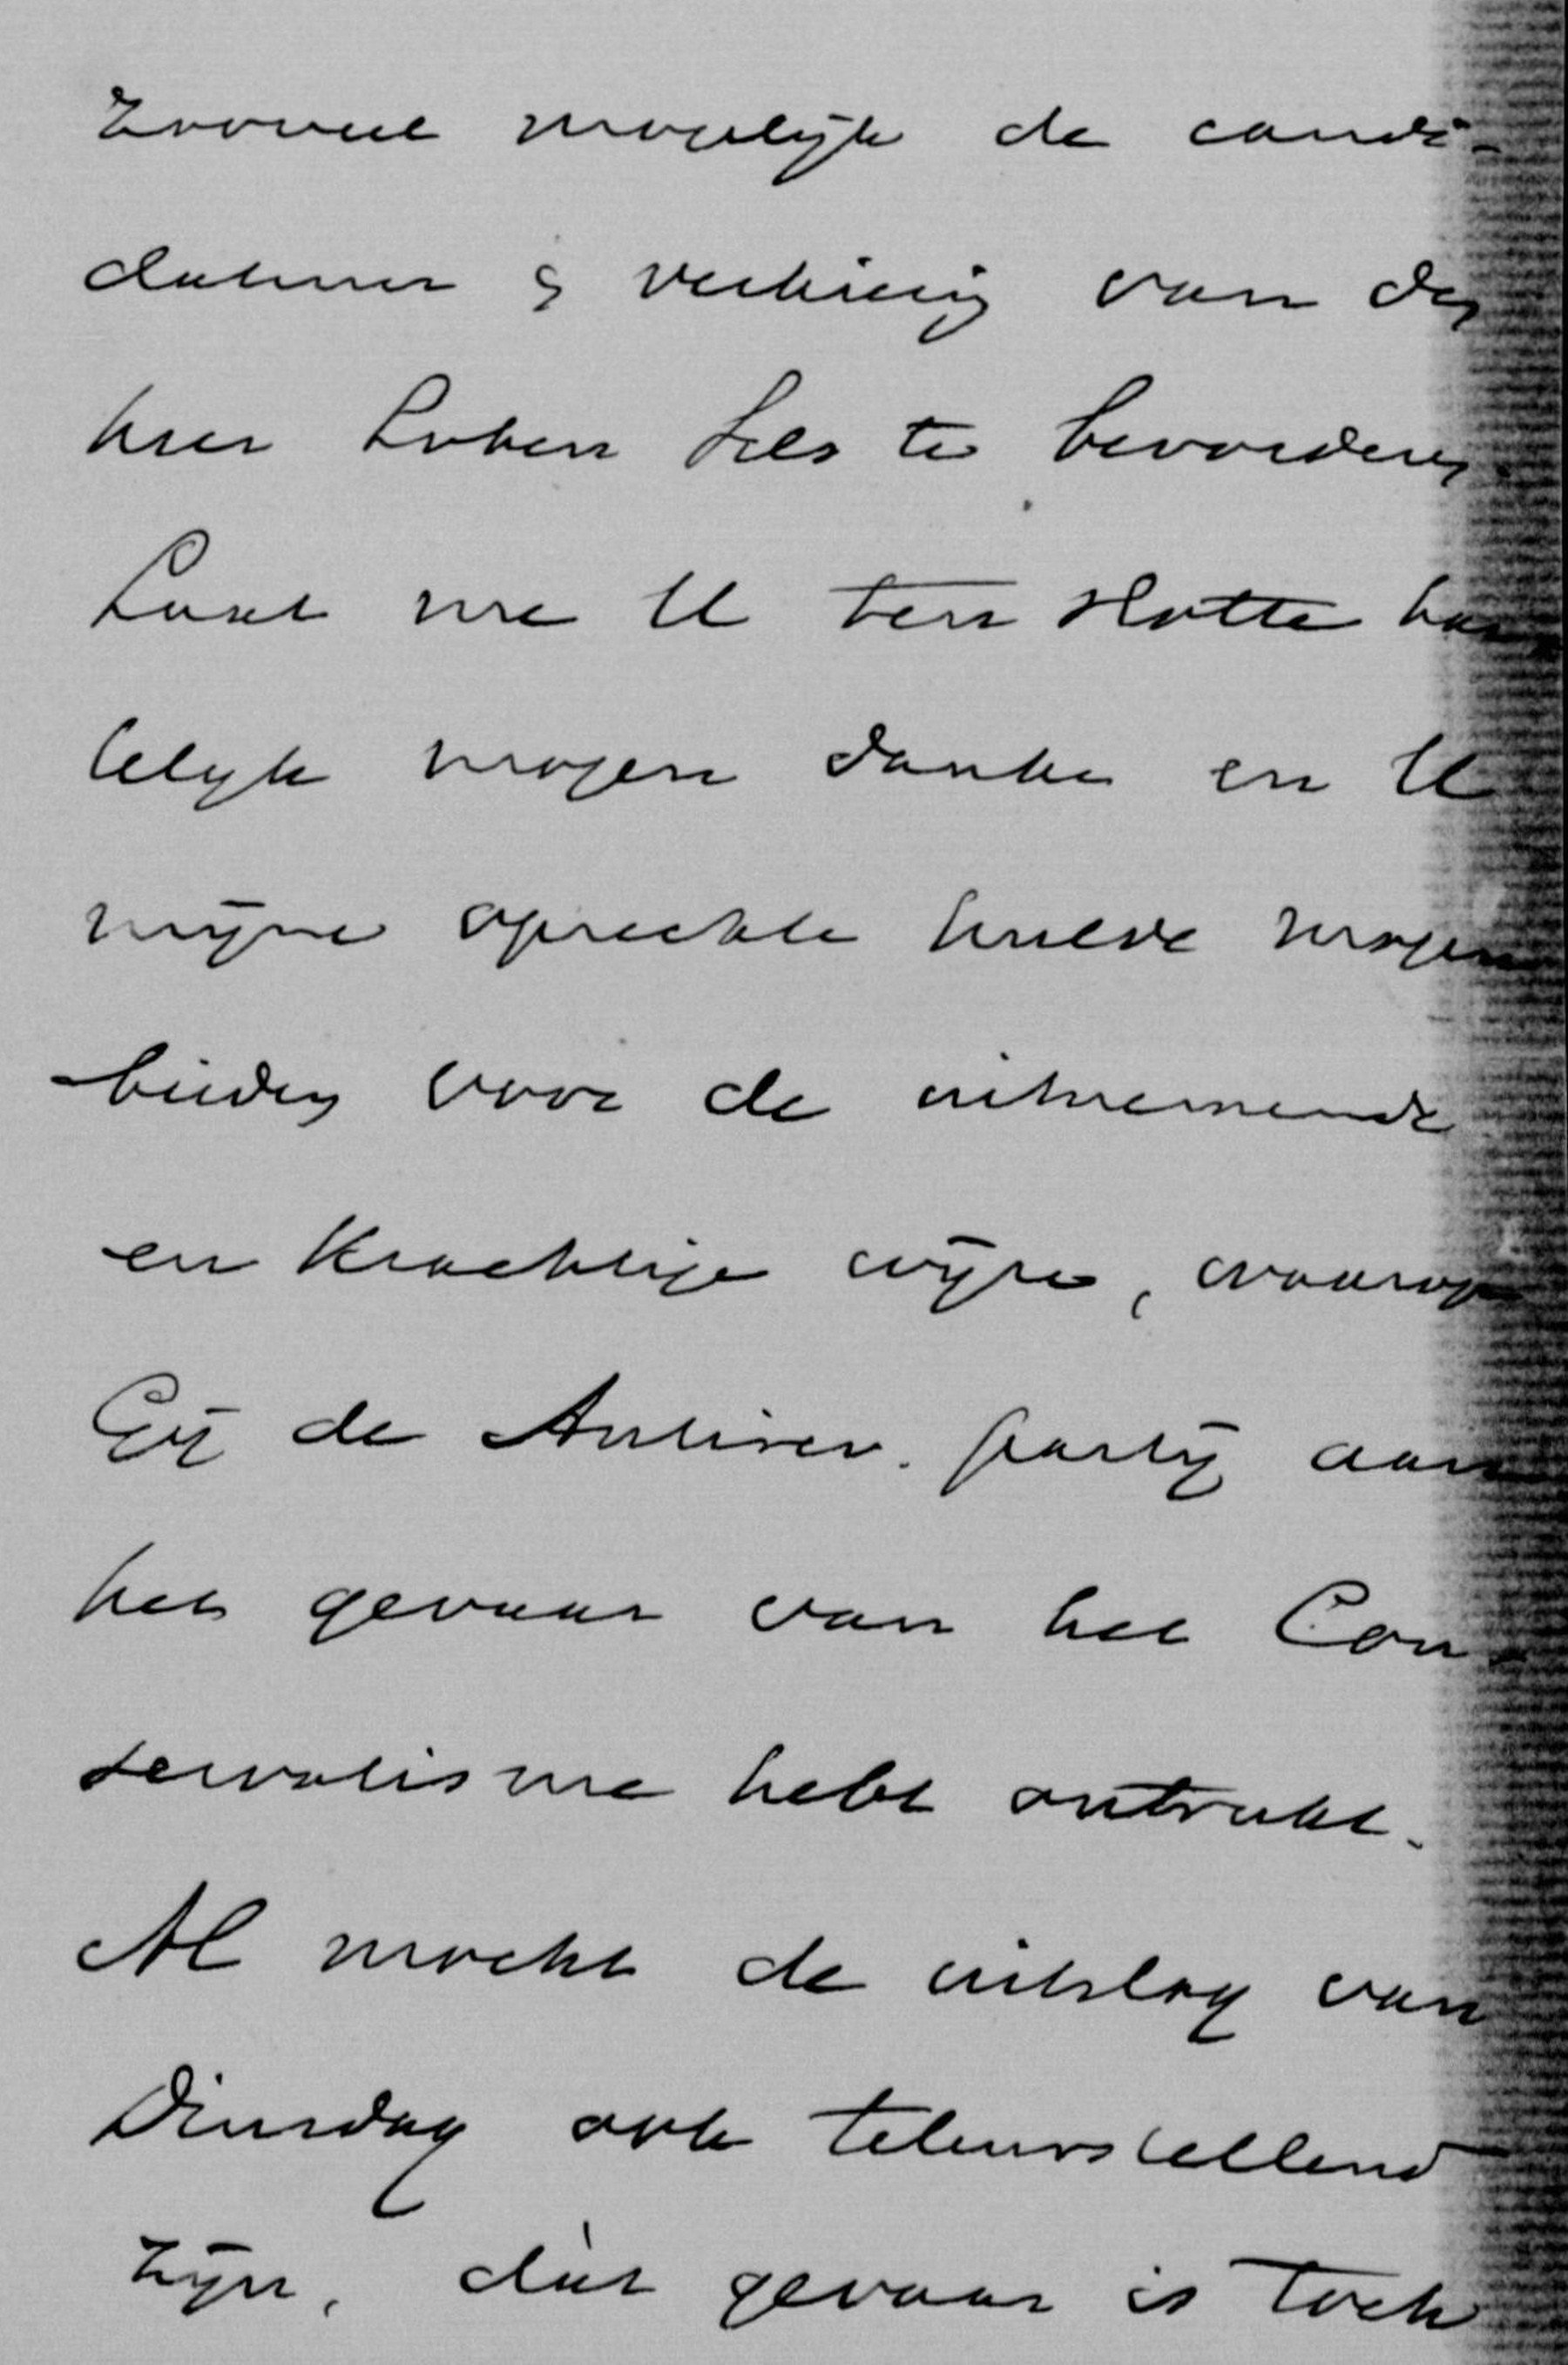 Zooveel mogelijk de candi-
datuur & verkiezing van den
heer Lohen Sels te bevorderen.
Laat me U ten slotte har
telijk mogen danken en U
mijne oprechte hulde mogen
bieden voor de uitnemende
en krachtige wijze, waarop
Gij de Antirev. partij aan
het gevaar van het Con-
servatisme hebt ontrukt.
Al mocht de uitslag van
Dinsdag ook teleurstellend
zijn, dàt gevaar is toch